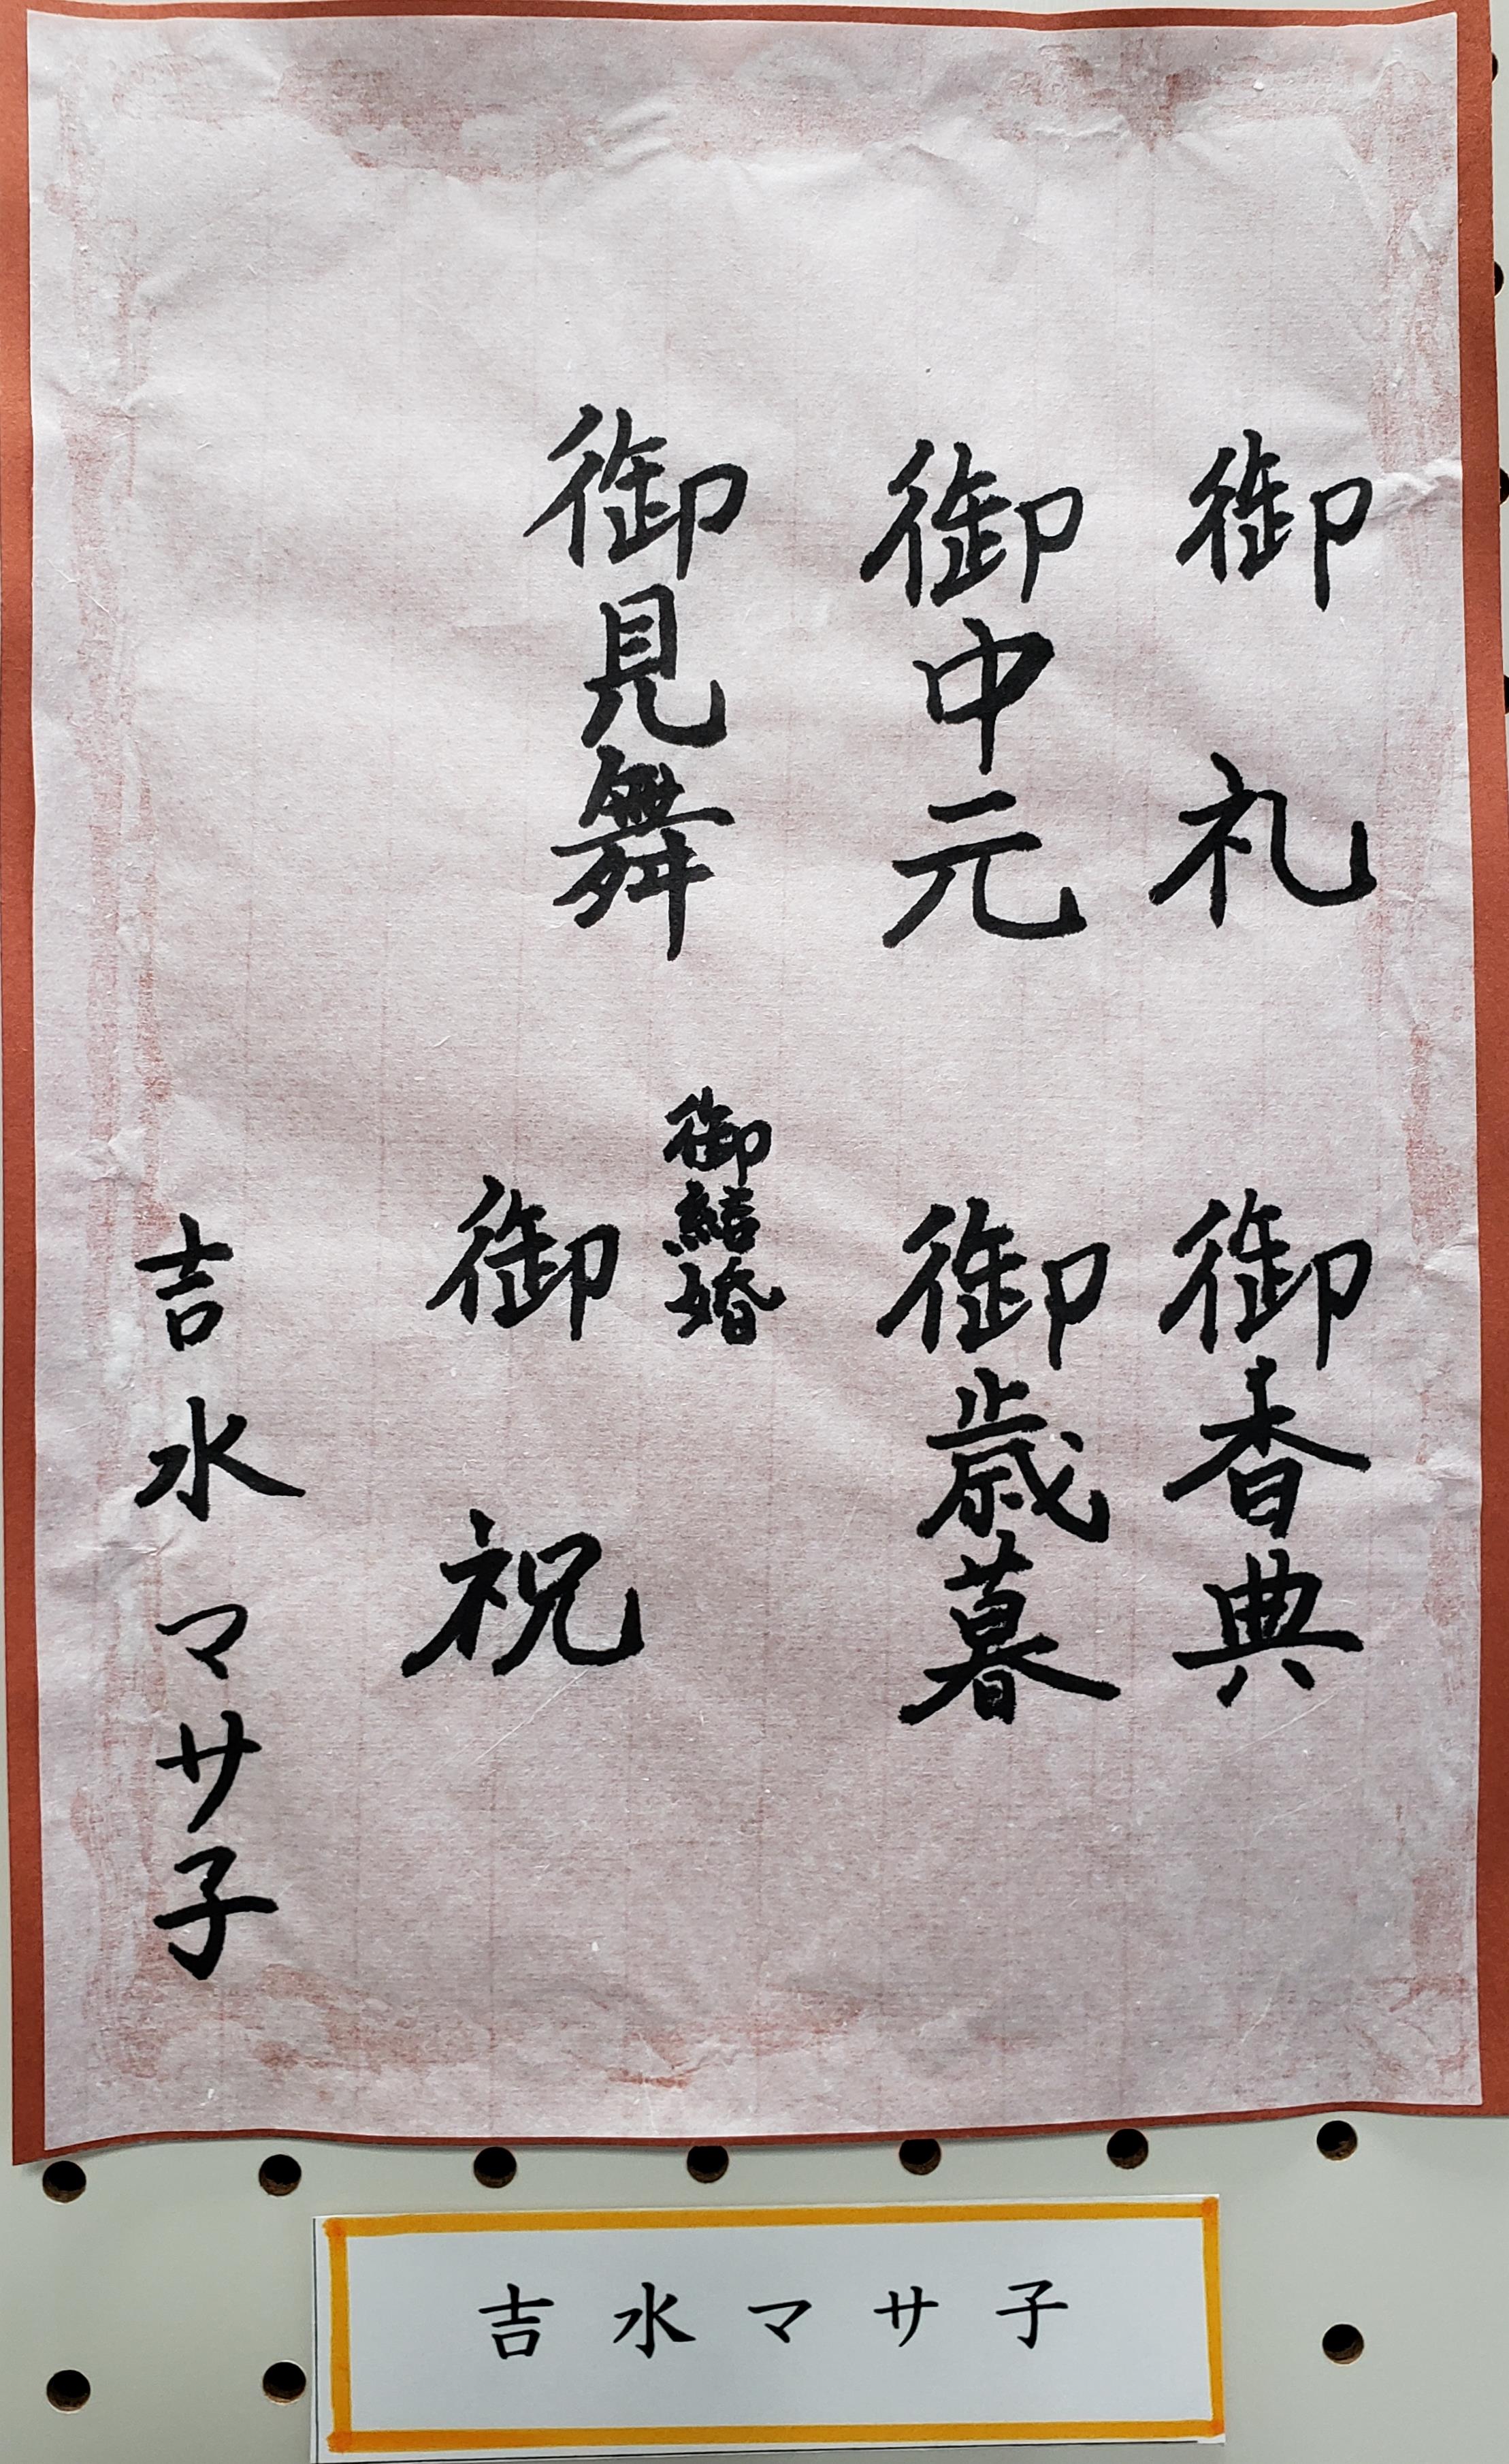 御礼
御香典
御中元
御歳暮
御見舞
御結婚
御祝
吉水マサ子
吉水マサ子